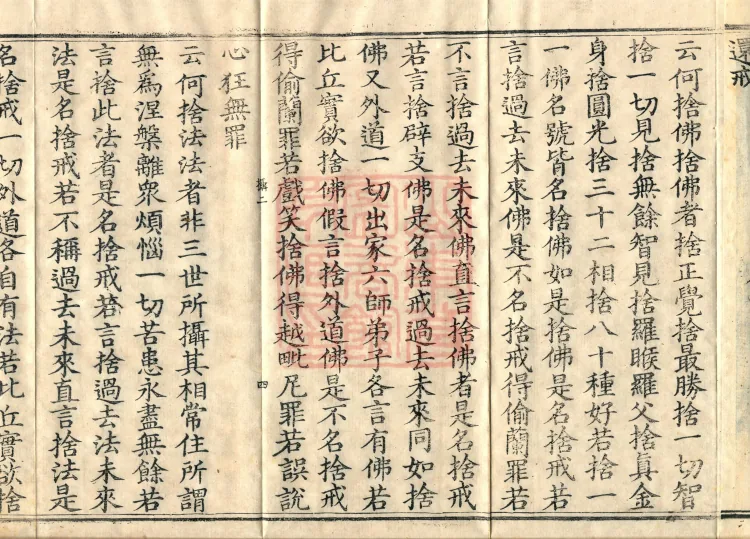 還戒
云何捨佛捨佛者捨正覺捨最勝捨一切智
捨一切見捨無餘智見捨羅睺羅父捨真金
身捨圓光捨三十二相捨八十種好若捨一
一佛名號皆名捨佛如是捨佛是名捨戒若
言捨過去未來佛是不名捨戒得偷蘭罪若
不言捨過去未來佛直言捨佛者是名捨戒
若言捨辟支佛是名捨戒過去未來同如捨
佛又外道一切出家六師弟子各言有佛若
比丘實欲捨佛假言捨外道佛是不名捨戒
得偷蘭罪若戲笑捨佛得越毗尼罪若誤說
攝二 四
心狂無罪
云何捨法法者非三世所攝其相常住所謂
無爲涅槃離衆煩惱一切苦患永盡無餘若
言捨此法者是名捨戒若言捨過去法未來
法是名捨戒若不稱過去未來直言捨法是
名捨戒一切外道各自有法若比丘實欲捨